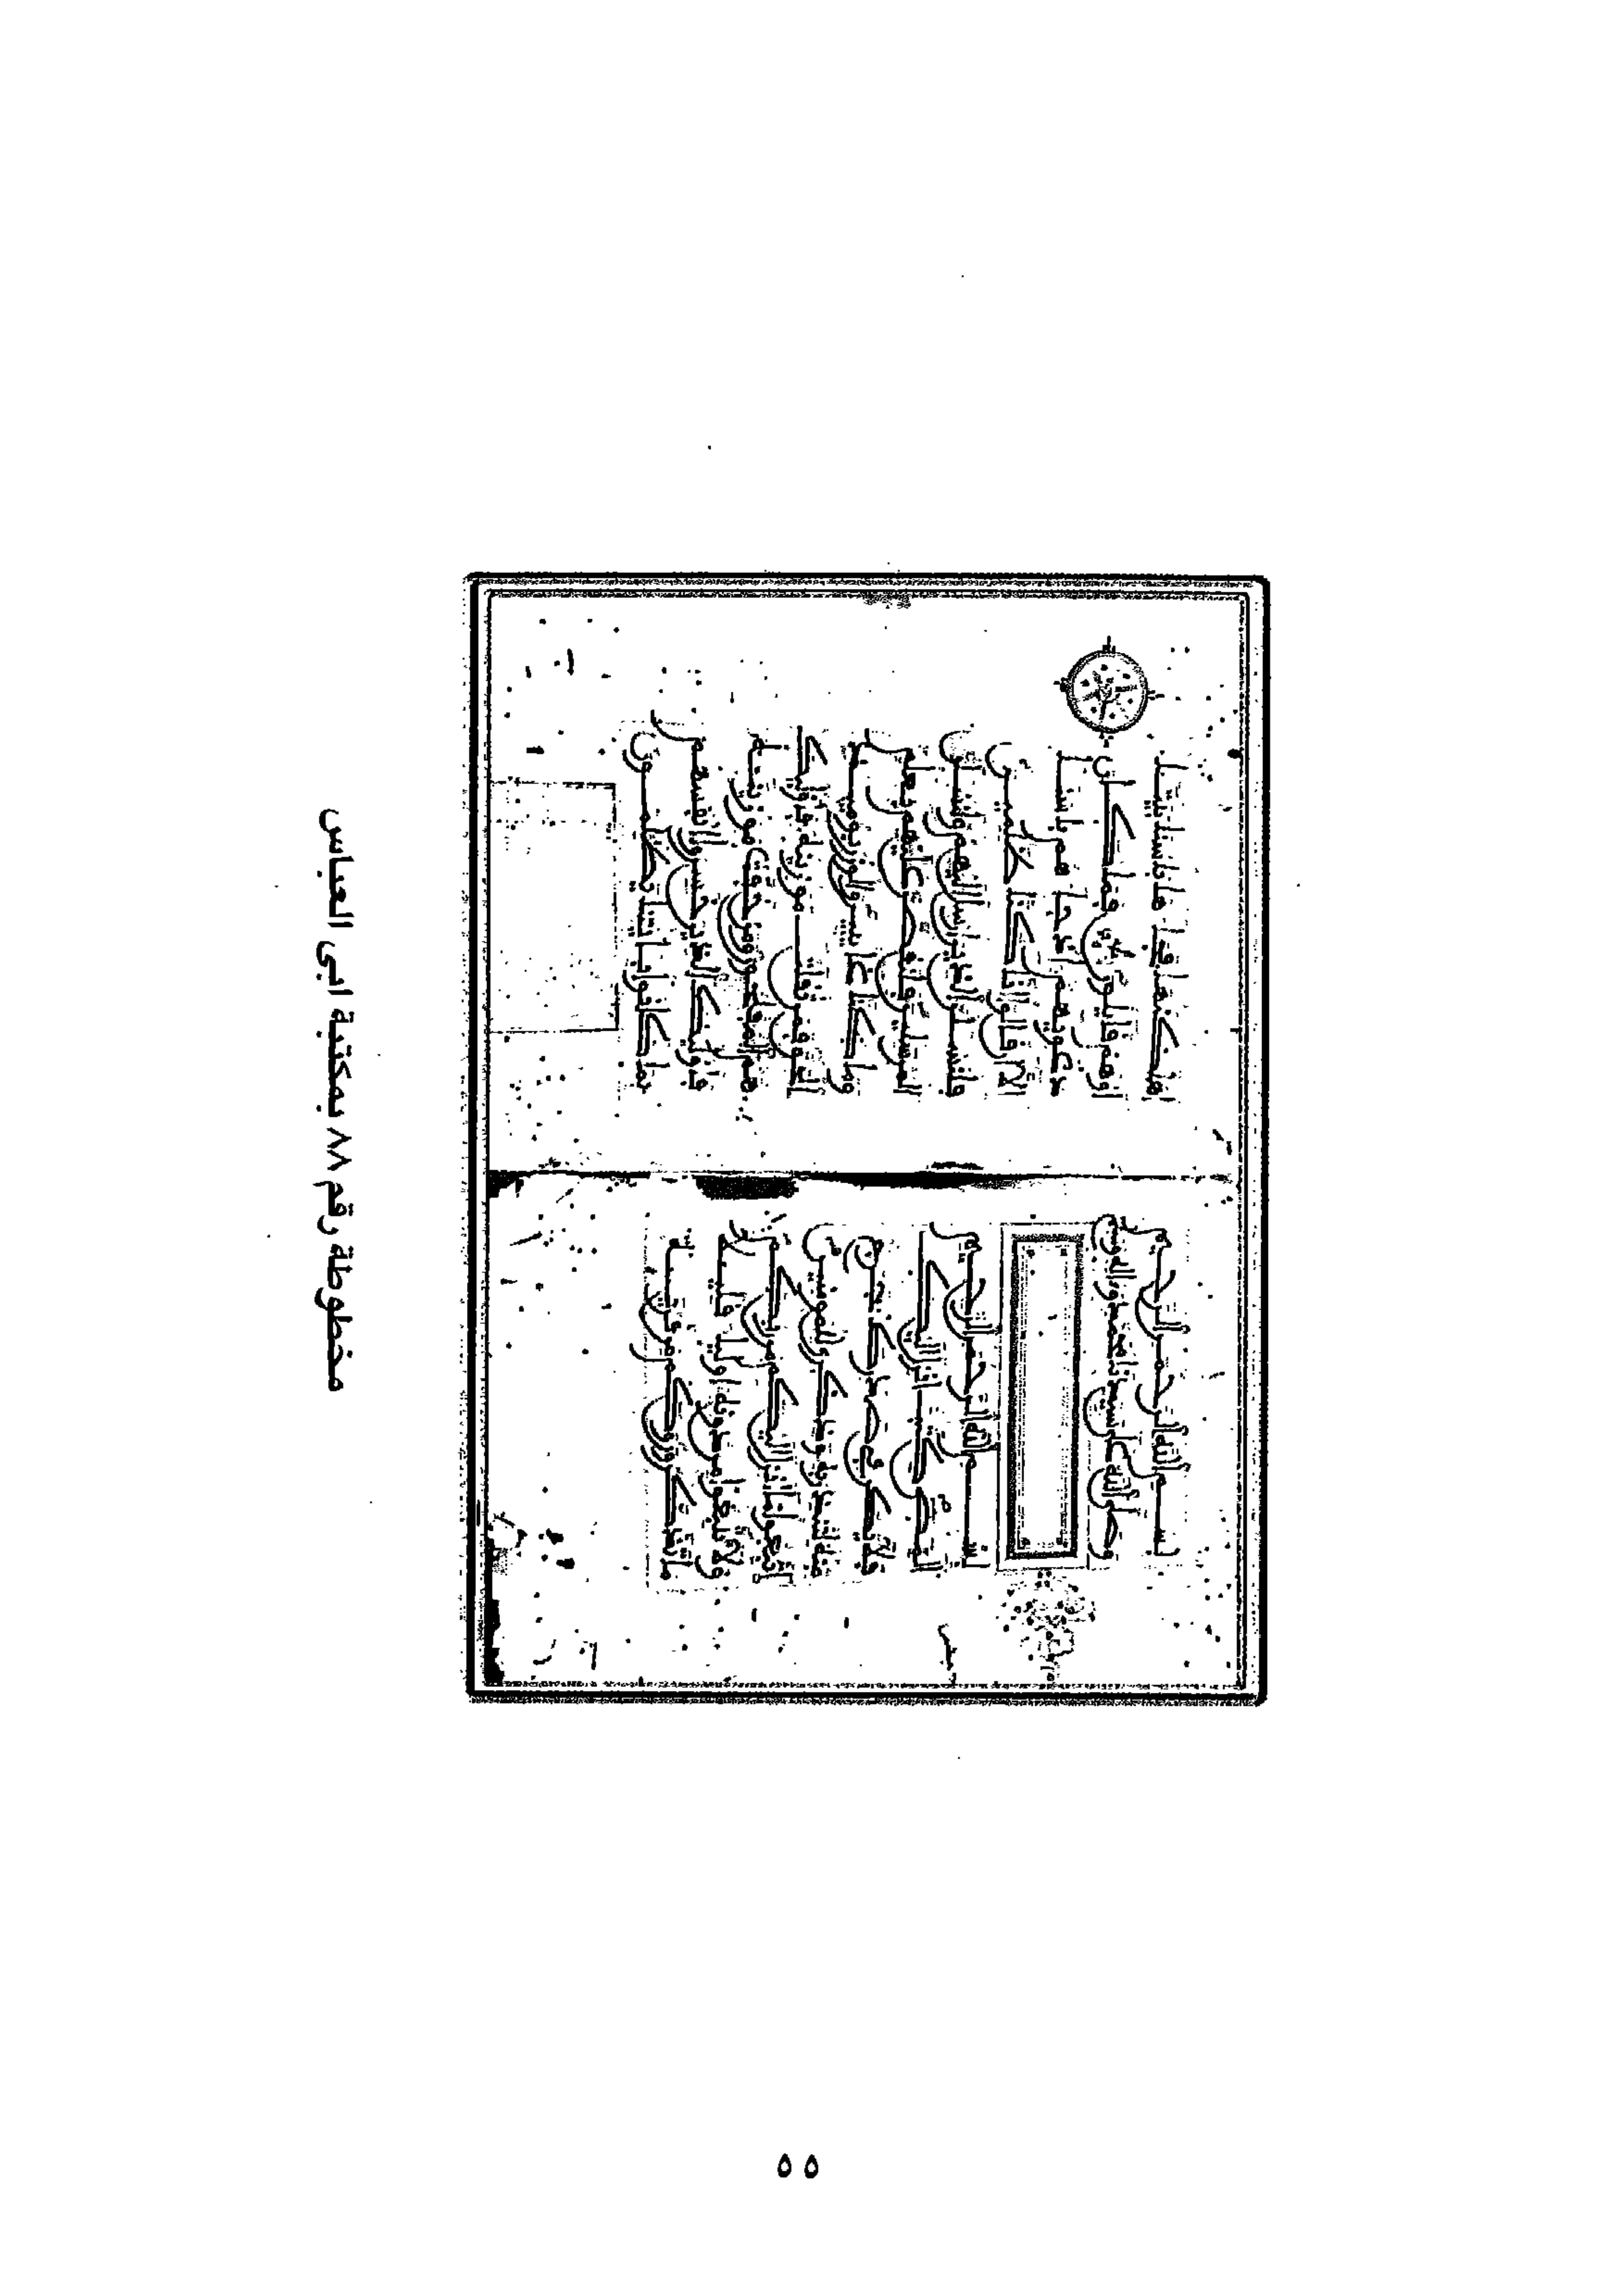 بسم الله الرحمن الرحيم
وصلى الله على سيدنا محمد واله
بسم الله الرحمن الرحيم
المص كتب انزل اليك
فلا يكن في صدرك حرج
منه لتنذر به وذكرى للمومنين
اتبعوا ما انزل اليكم من ربكم
ولا تتبعوا من دونه اولياء قليلا
ما تذكرون وكم من قرية
اهلكنها فجاءها باسنا بيتا
او هم قايلون فما كان
دعويهم اذ جاءهم باسنا
الا ان قالوا انا كنا ظلمين
فلنسئلن الذين ارسل اليهم ولنسئلن
المرسلين فلنقصن عليهم بعلم
وما كنا غايبين والوزن يومئذ
الحق فمن ثقلت موازينه فاوليك
هم المفلحون ومن خفت موازينه
فاوليك الذين خسروا انفسهم
بما كانوا بايتنا يظلمون
مخطوطة رقم ٨٨ بمكتبة ابي العباس
٥٥